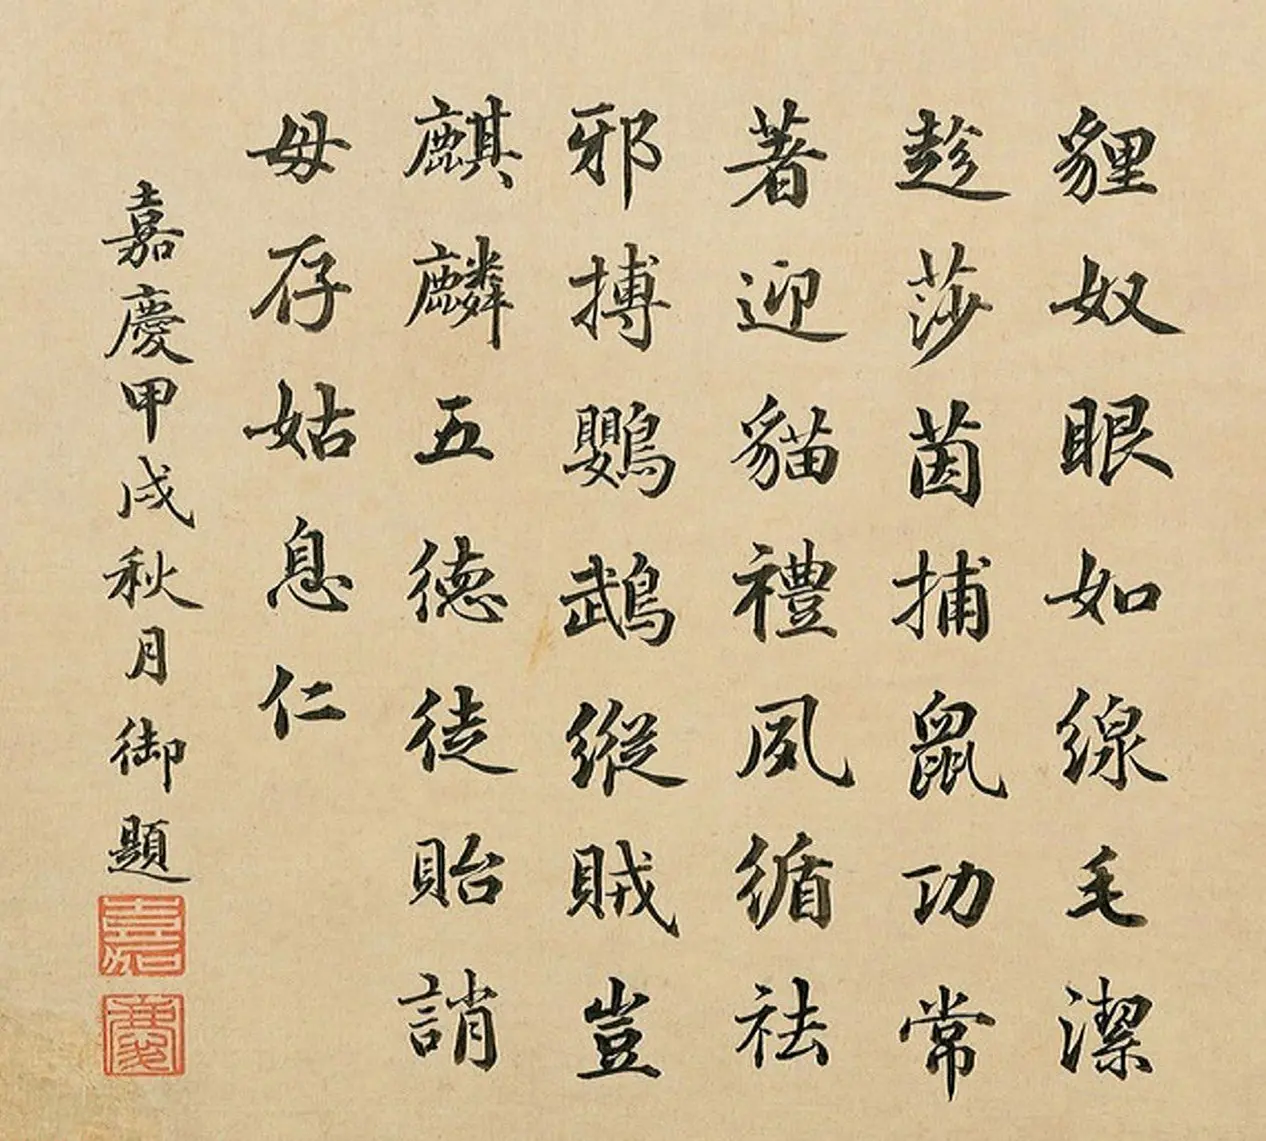 貍奴眼如線毛潔
趁莎茵捕鼠功常
著迎貓禮夙循祛
邪搏鸚鵡縱賊豈
麒麟五德徒貽誚
毋存姑息仁
嘉慶甲戌秋月御題
嘉
慶